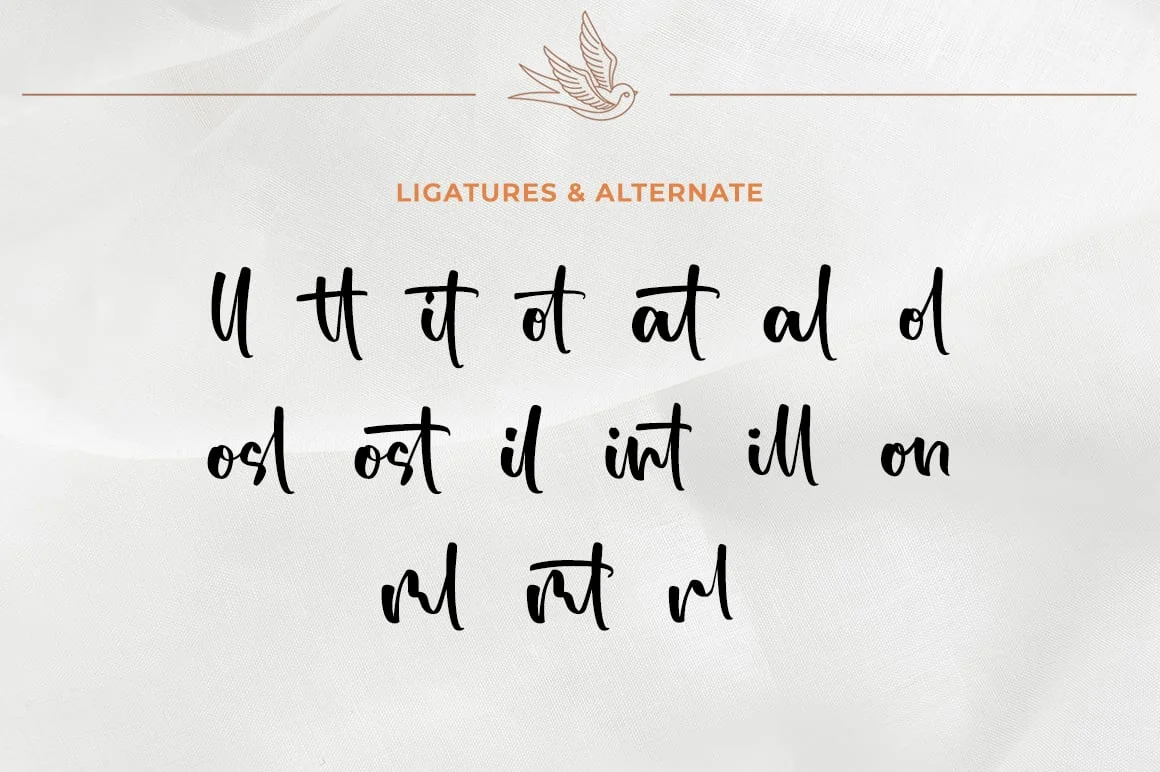 LIGATURES & ALTERNATE
ll tt it ot at al ol
osl ost il int ill on
nl nt rl